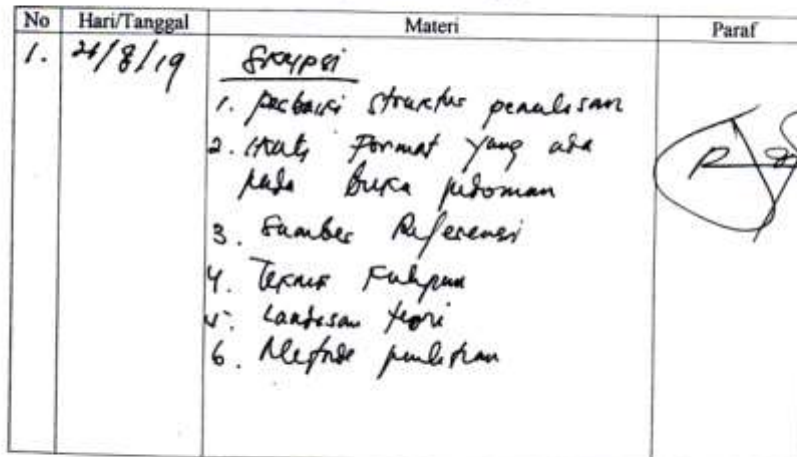 No Hari/Tanggal Materi Paraf
1. 21/8/19 Skripsi
1. perbaiki struktur penulisan
2. ikuti format yang ada
pada buku pedoman
3. Sumber Referensi
4. Teknik Kutipan
5. Landasan teori
6. Metode penelitian